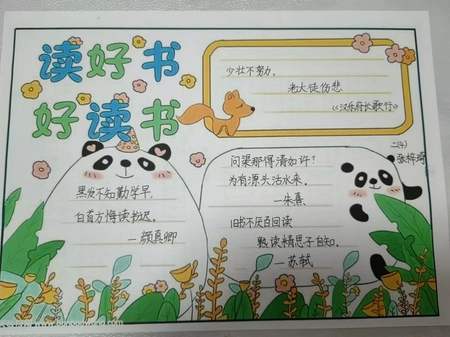 读好书
好读书
少壮不努力,
老大徒伤悲
《汉乐府长歌行》
二(4)
张梓琦
黑发不知勤学早,
白首方悔读书迟。
—颜真卿
问渠那得清如许?
为有源头活水来。
—朱熹
旧书不厌百回读
熟读精思子自知。
—苏轼